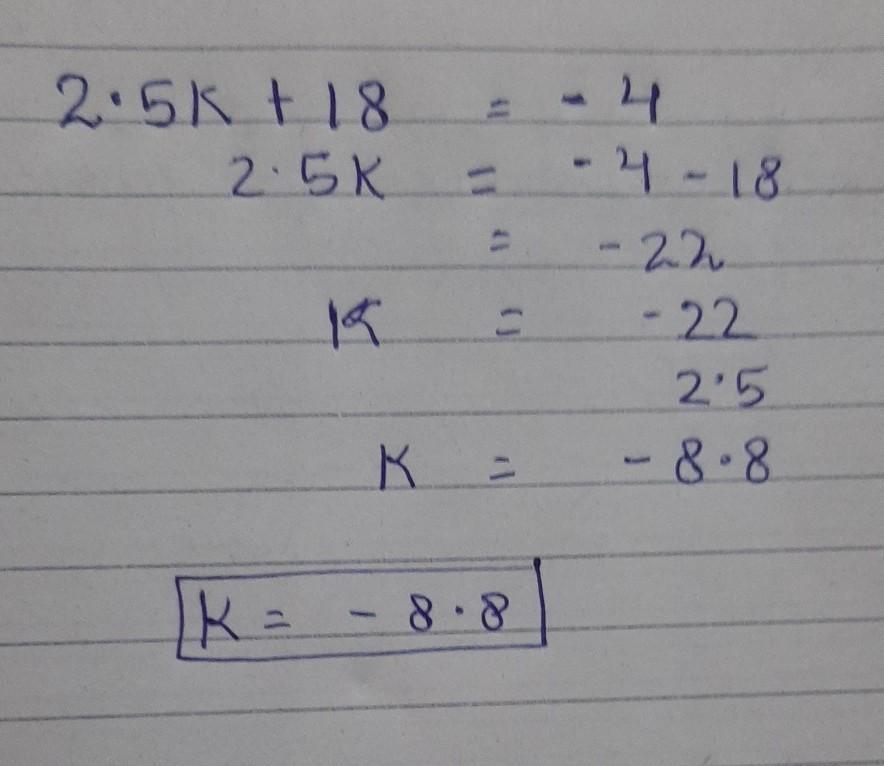 2.5K + 18 = - 4
2.5K = - 4 - 18
= - 22
K = - 22
2.5
K = - 8.8
K = - 8.8